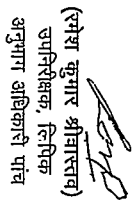 (रमेश कुमार श्रीवास्तव)
उपनिरीक्षक, लिपिक
अनुभाग अधिकारी पांच